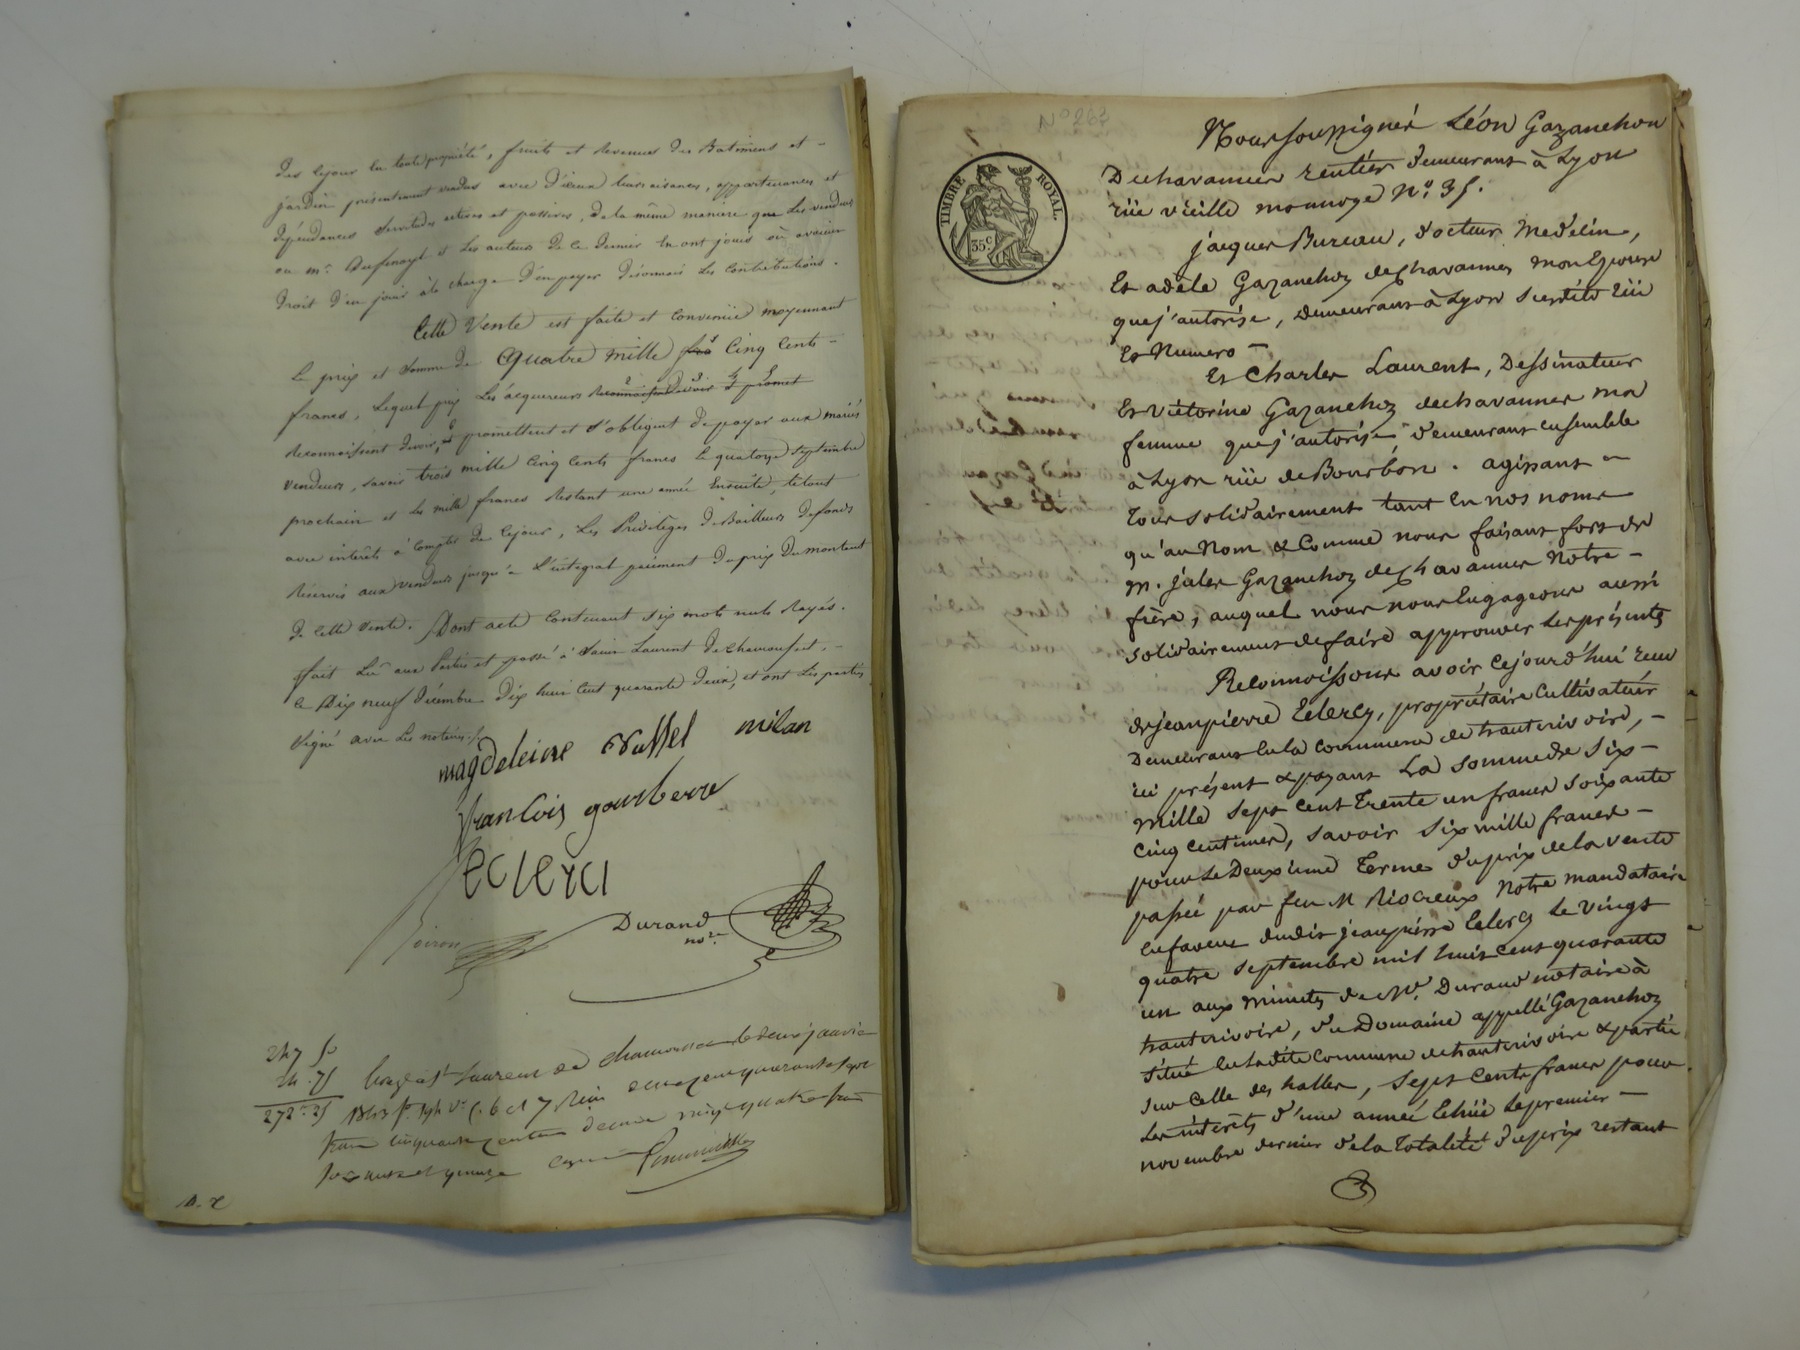 des cejour en toute propriété, fruits et revenus des Batimens et –
jardin présentement vendus avec d'iceux leurs aisances, appartenances et
dépendances servitudes actives et passives, de la même manière que les vendeurs
ou mr. Dufenayl et les auteurs de ce dernier en ont joui ou avaient
droit d'en jouir à la charge d'en payer désormais les contributions.
Cette Vente est faite et convenüe moyennant
le prix et somme de Quatre mille Cinq Cents –
francs, lequel prix les acquereurs reconnaissent devoir et promet
reconnaissent devoir, et promettent et s'obligent de payer aux mariés
vendeurs, savoir trois mille cinq cents francs le quatorze septembre
prochain et les mille francs restant une année Ensuite, le tout
avec intérêts à compter de Cejour, les Privilèges de Bailleurs de fonds
réservés aux vendeurs jusqu'à l'intégral paiement du prix du montant
de cette vente. Dont acte Contenant six mots nuls rayés.
fait Lû aux Parties et passé à Saint Laurent de Chamousset. –
le Dix neuf Décembre dix huit cent quarante deux, et ont les parties
signé avec les notaires./.
magdeleine Vussel milan
francois gourberre
leclerci
Durand
nore
247 f
24.75
272.25
Enregé à St Laurent de chamousset le deux janvier
quatre
N° 263
TIMBRE ROYAL.
35c.
Nous soussignés Léon Gazanchon
Dechavannes rentier demeurant à Lyon
rüe vieille monnoye N° 35.
jacques Bureau, docteur Medelin,
Et adèle Gazanchoz dechavannes mon Epouse
que j'autorise, demeurans à Lyon susdite rüe
Et Numero –
Et Charles Laurent, Dessinateur
Et Victorine Gazanchoz dechavannes ma
femme que j'autorise demeurans ensemble
à Lyon rüe de Bourbon. agissans –
tous solidairement tant en nos noms
qu'au Nom & Comme nous faisans fort de
M. jules Gazanchoz dechavannes Notre –
frère, auquel nous nous Engageons aussi
solidairement de faire approuver les présentes
Reconnoissons avoir Cejourd'hui recu
de jeanpierre Leclercq, propriétaire Cultivateur
Demeurans en la Commune de hauterivoire, –
ici présent & payans La somme de Six –
mille Sept Cent Trente un francs soixante
Cinq centimes, savoir six mille francs –
pour le Deuxième Terme du prix de la vente
passée par feu M Riocreux Notre mandataire
en faveur dudit jeanpierre Leclercq le vingt
quatre septembre mil huit cent quarante
un aux minutes de Me. Durand notaire à
hauterivoire, du Domaine appellé Gazanchoz
situé en ladite Commune de hauterivoire & partie
sur Celle des halles, sept Cents francs pour
les intérêts d'une année Echüe le premier –
novembre dernier de la Totalité du prix restant